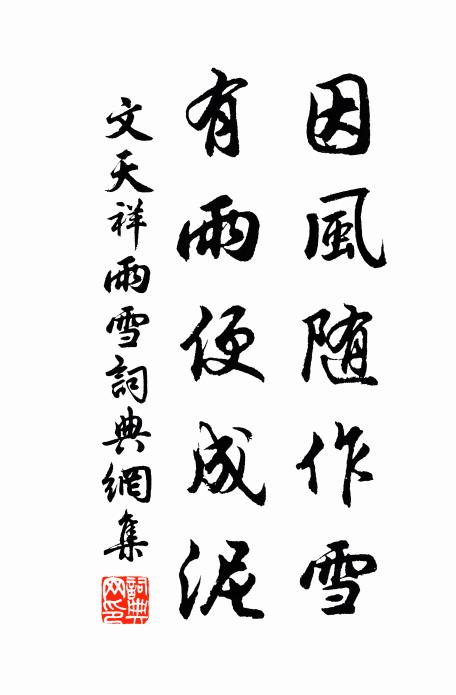 因風随作雪
有雨便成泥
文天祥雨雪詞典網集
詞典網印